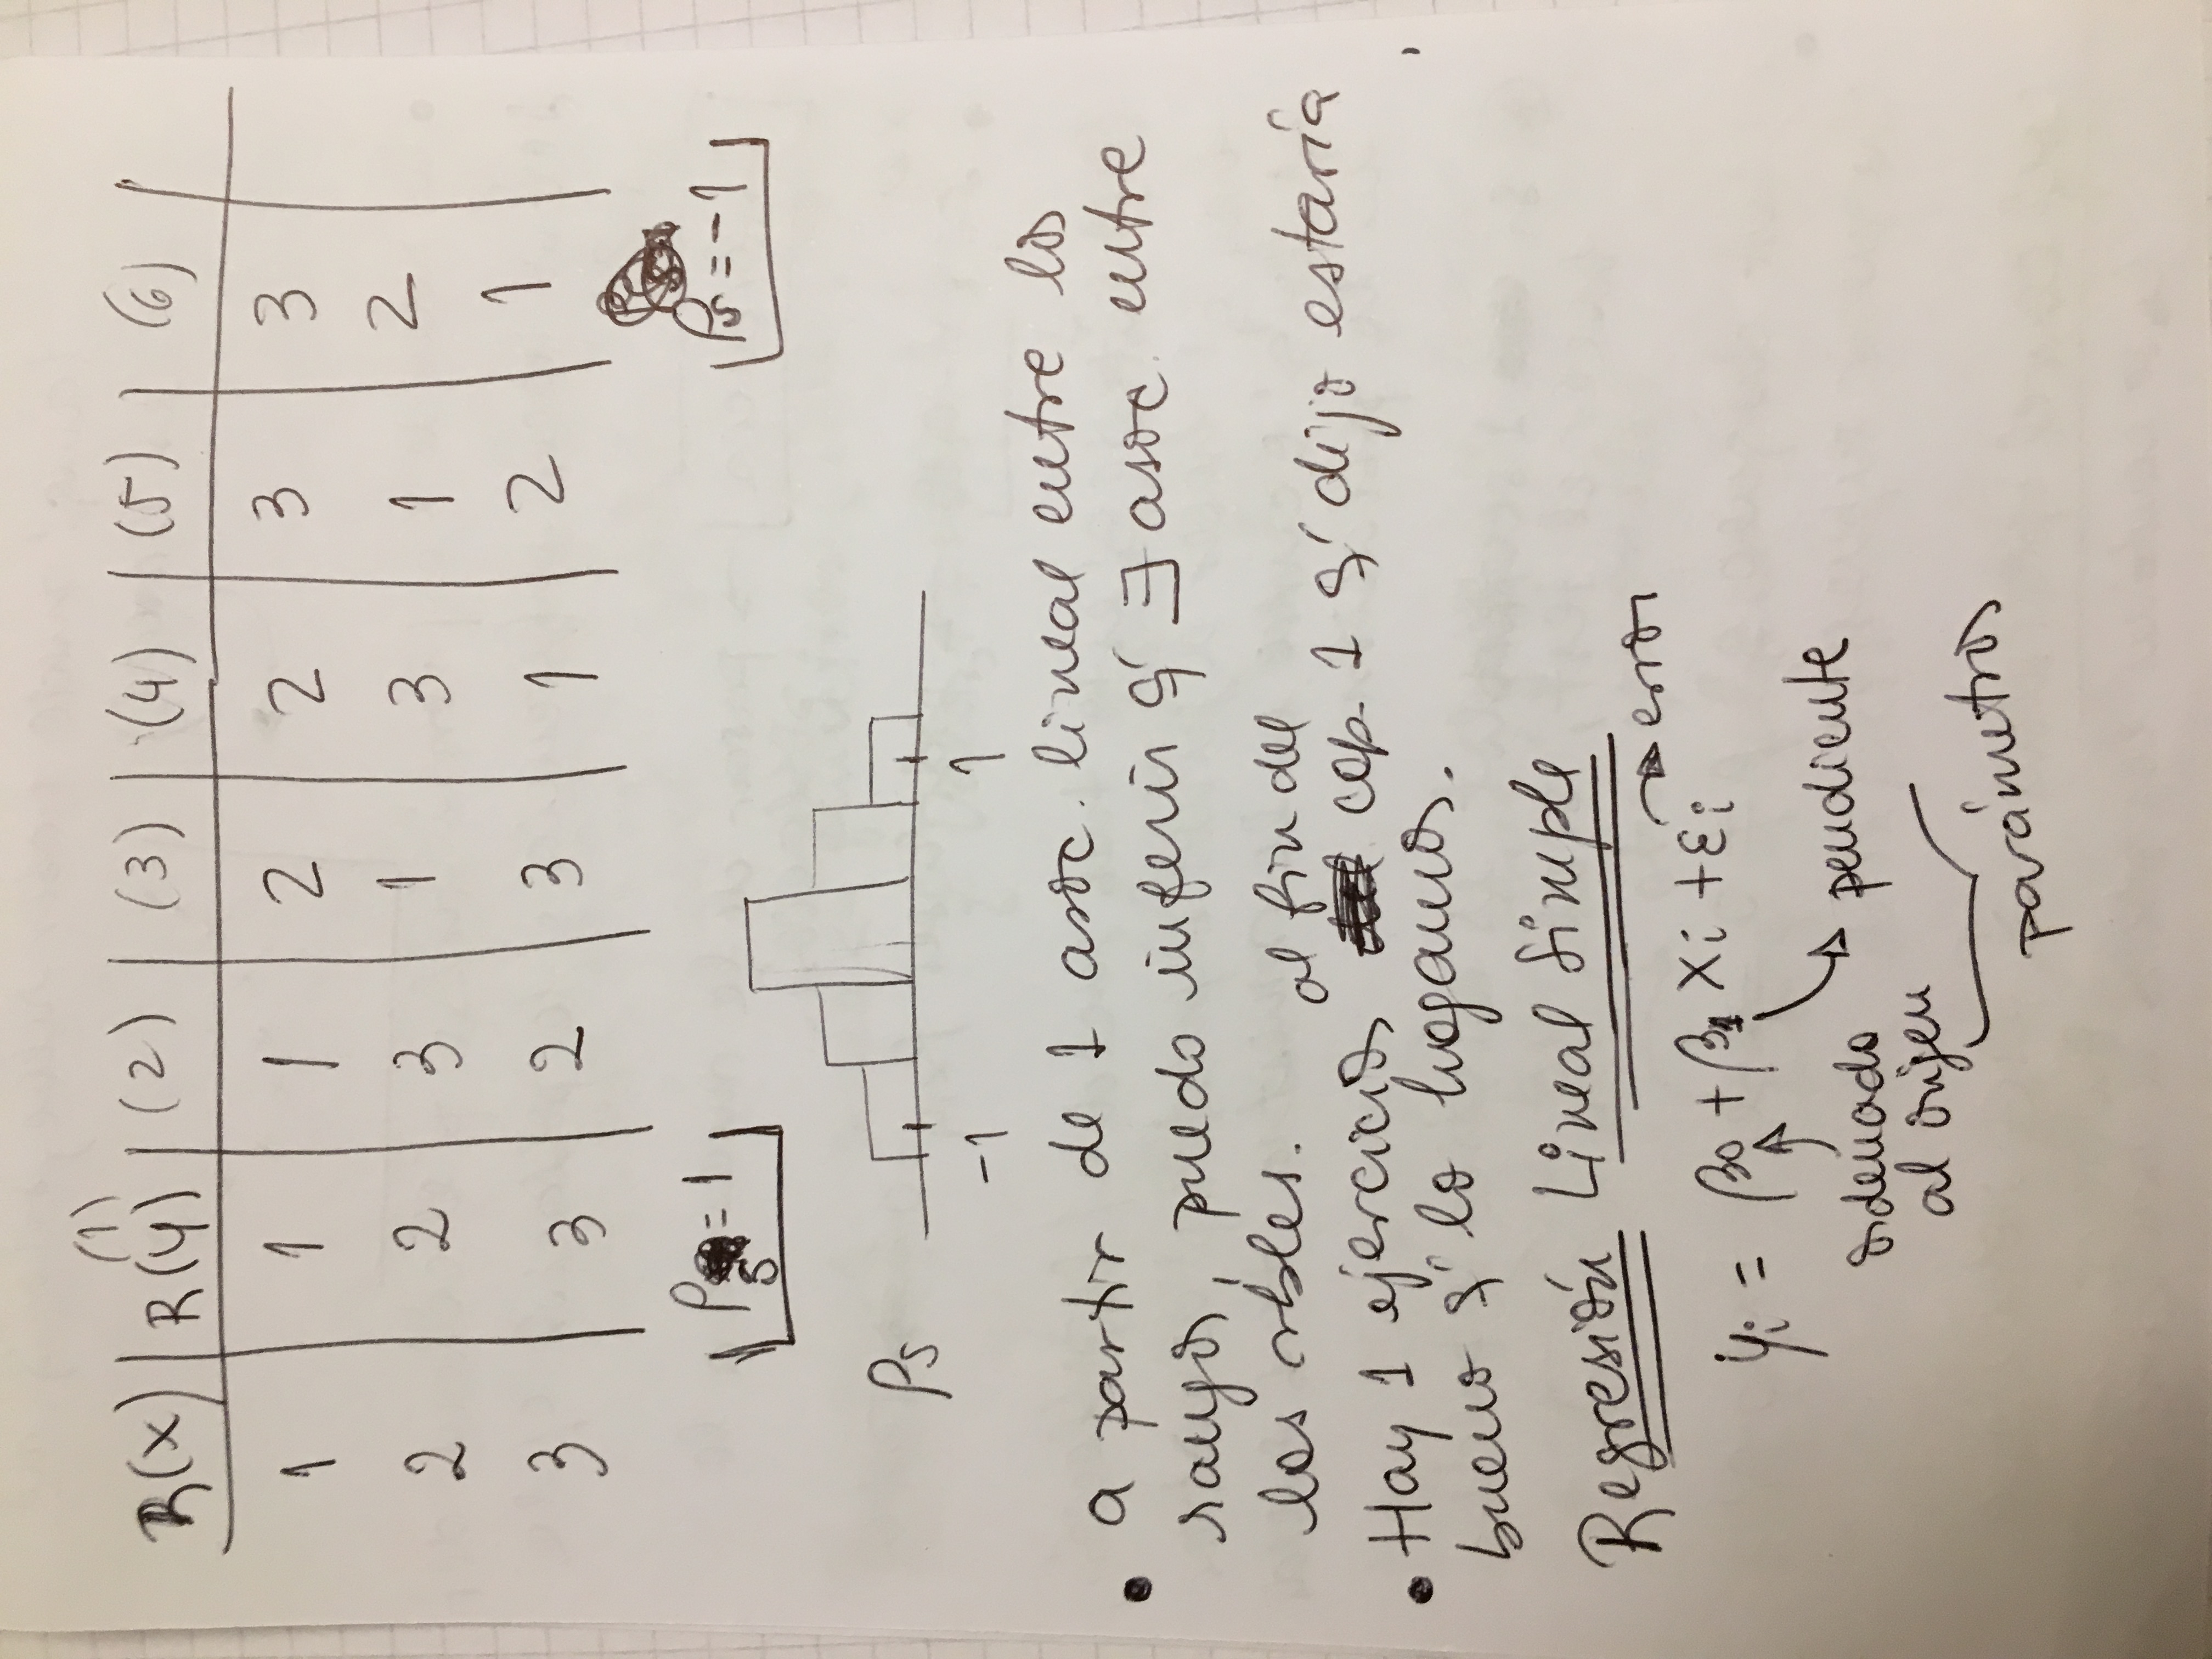 (1)
R(x) R(y) (2) (3) (4) (5) (6)
1 1 1 2 2 3 3
2 2 3 1 3 1 2
3 3 2 3 1 2 1
ρs = 1 ρs = -1
ρs
-1 1
• a partir de 1 asoc. lineal entre los
rangos, puedo inferir q' ∃ asoc. entre
las vbles.
al fin del
• Hay 1 ejercicios cap. 1 q' dijo estaría
bueno q' lo hagamos.
Regresión Lineal Simple
error
yi = β0 + β1 xi + εi
pendiente
ordenada
al origen
parámetros